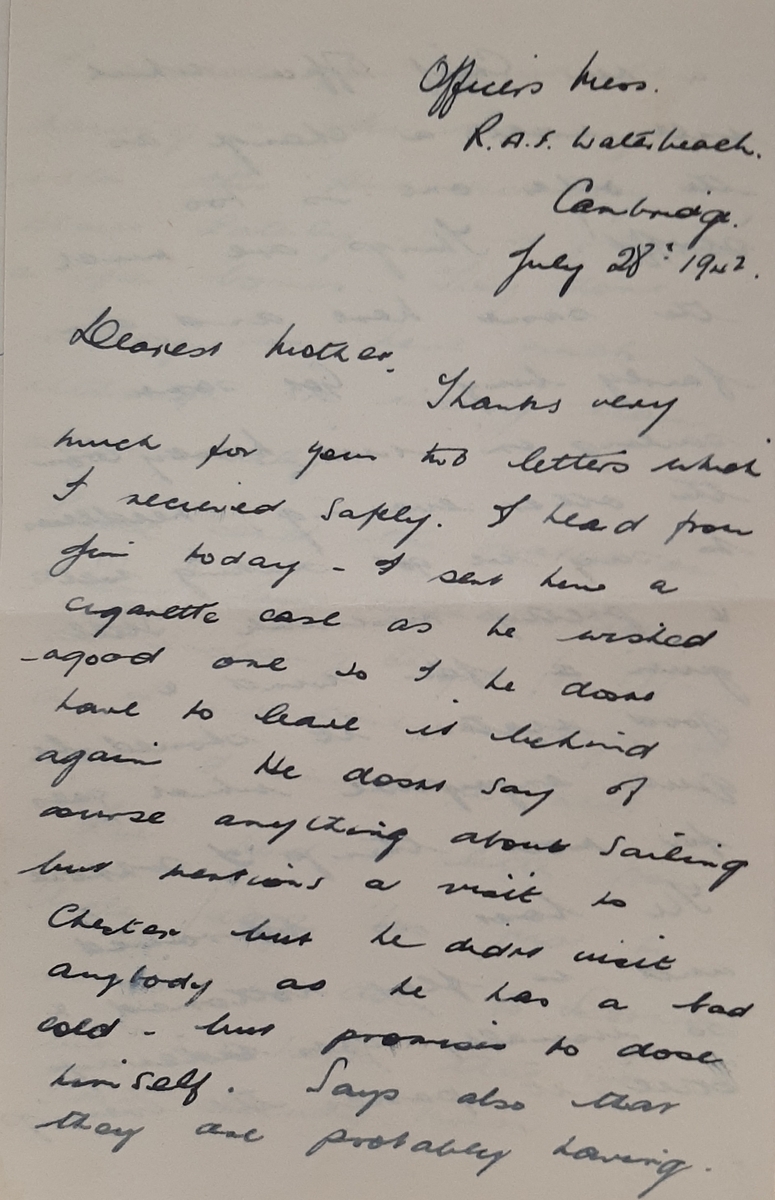 Officers Mess.
R.A.F. Waterbeach.
Cambridge.
July 28th 1942.
Dearest Mother,
Thanks very
much for your two letters which
I recieved safely. I heard from
Jim today - I sent him a
cigarette case as he wished
- a good one so I he doesnt
have to leave it behind
again He doesnt say of
course anything about sailing
but mentions a visit to
Chester but he didnt visit
anybody as he has a bad
cold - but promises to dose
himself. Says also that
they are probably having.